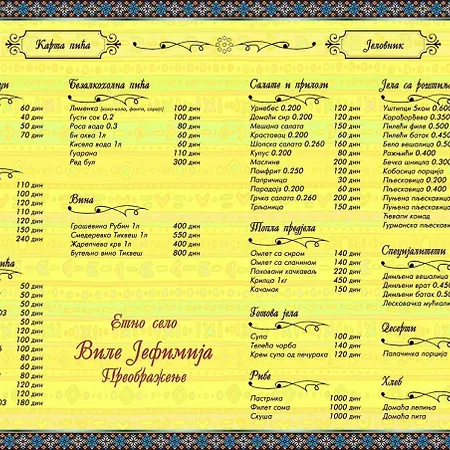 Карта пића
Јеловник
60 дин
40 дин
50 дин
70 дин
110 дин
110 дин
130 дин
120 дин
150 дин
240 дин
50 дин
50 дин
50 дин
50 дин
50 дин
100 дин
120 дин
180 дин
Безалкохолна пића
Лименка (кока-кола, фанта, спрајт) 100 дин
Густи сок 0.2 100 дин
Роса вода 0.3 80 дин
Би аква 1л 60 дин
Кисела вода 1л 60 дин
Гуарана 110 дин
Ред бул 300 дин
Вина
Грошевина Рубин 1л 400 дин
Смедеревка Тиквеш 1л 550 дин
Ждрепчева крв 1л 400 дин
Бутељно вино Тиквеш 800 дин
Етно село
Виле Јефимија
Преображење
Салате и прилози
Урнебес 0.200 120 дин
Домаћи сир 0.200 120 дин
Мешана салата 150 дин
Краставац 0.200 100 дин
Шопска салата 0.260 160 дин
Купус 0.200 80 дин
Виместан 150 дин
Помфрит 0.250 120 дин
Папричица 30 дин
Парадајз 0.200 60 дин
Грчка салата 0.260 200 дин
Трљаница 150 дин
Топла предјела
Омлет са сиром 140 дин
Омлет са сланином 140 дин
Поховани качкаваљ 220 дин
Кришца 1кг 450 дин
Качамак 150 дин
Готова јела
Супа 100 дин
Телећа чорба 140 дин
Крем супа од печурака 120 дин
Рибе
Пастрмка 1000 дин
Филет сома 1000 дин
Скуша 1000 дин
Јела са роштиља
Уштипци 8ком 0.600
Карађорђево 0.350
Пилећи филе 0.500
Пилећи батак 0.450
Бела вешалица 0.500
Ражњићи 0.400
Бечка шницла 0.300
Кобасица порција
Пљескавица 0.400
Пуњена пљескавица
Пуњена пљескавица
Ћевапи комад
Гурманска пљескавица
Специјалитети
Димљена вешалица
Димљени врат 0.450
Димљени батак 0.50
Лесковачка мућкалица
Десерти
Палачинка порција
Хлеб
Домаћа лепиња
Домаћа пита